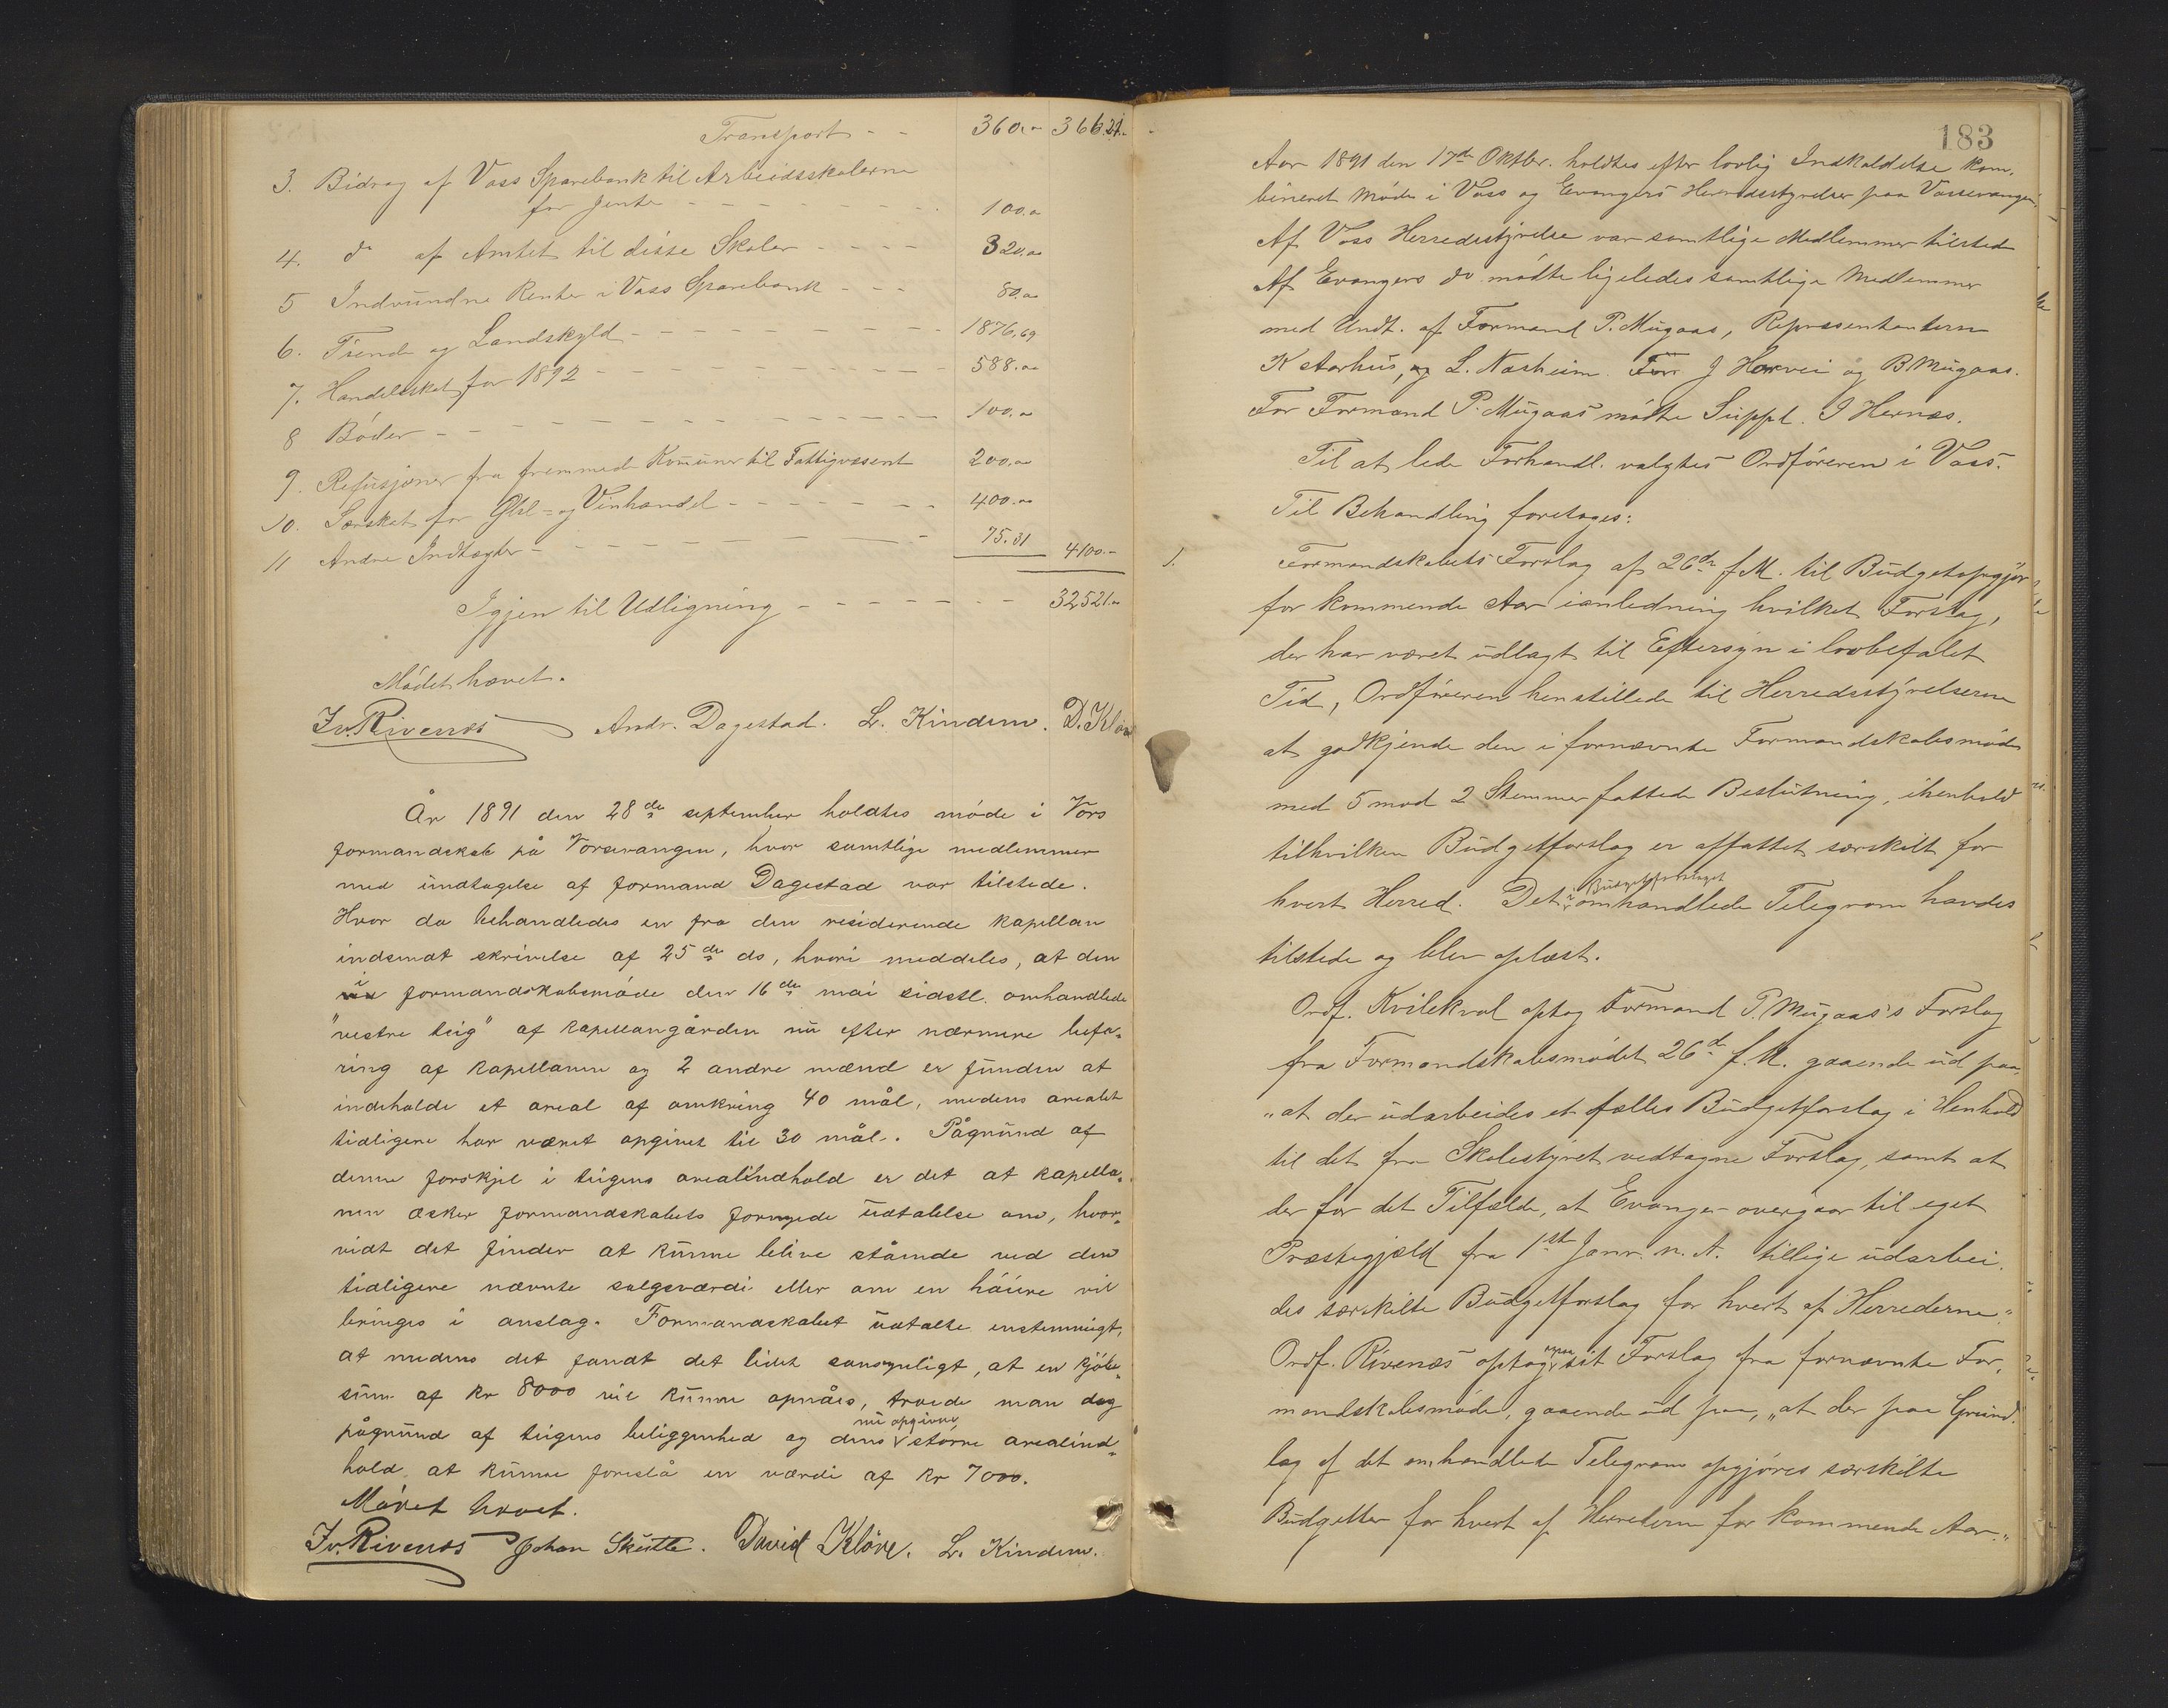 Transport - - 360.- 366.21.-
3. Bidrag af Voss Sparebank til Arbeidsskolerne
for Jenter - - - - - - - - 100.00
4. do af Amtet til disse Skoler - - - - 320.00
5 Indvundne Renter i Voss Sparebank - - - 80.00
6. Tiende og Landskyld - - - - - - - - 1876.69
7. Handelsskat for 1892 - - - - - - - - 588.00
8 Bøder - - - - - - - - - - 100.00
9. Refusjoner fra fremmede Komuner til Fattigvæsent 200.00
10. Særskat for Øhl- og Vinhandel - - - - - - 400.00
11 Andre Indtægter - - - - - - - - 75.31 4100.-
Igjen til Udligning - - - - - - 32521.00
Mødet hævet.
Iv. Rivenæs Andr. Dagestad. L. Kindem. D. Kløve
År 1891 den 28de september holdtes møde i Vors
formandskab på Vorsevangen, hvor samtlige medlemmer
med undtagelse af formand Dagestad var tilstede.
Hvor da behandledes en fra den residerende kapellan
indsendt skrivelse af 25de ds, hvori meddeles, at den
i formandskabsmøde den 16de mai sidstl. omhandlede
"vestre teig" af kapellangården nu efter nærmere befa-
ring af kapellanen og 2 andre mænd er funden at
indeholde et areal af omkring 40 mål, medens arealet
tidligere har været opgivet til 30 mål. Pågrund af
denne forskjel i teigens arealindhold er det at kapella-
nen æsker formandskabets fornyede udtalelse om, hvor-
vidt det finder at kunne blive stående ved den
tidligere nævnte salgsværdi eller om en høiere vil
bringes i anslag. Formandskabet udtalte enstemmigt,
at medens det fandt det lidet sansynligt, at en kjøbe-
sum af kr 8000 vil kunne opnåes, troede man dog
nu opgivne
pågrund af teigens beliggenhed og dens større arealind-
hold at kunne foreslå en værdi af kr 7000.
Mødet hævet.
Iv. Rivenæs Johan Skutle. David Kløve. L. Kindem.
183
Aar 1891 den 17de Oktbr. holdtes efter lovlig Indkaldelse kom-
bineret Møde i Voss og Evangers Herredsstyrelser paa Vossevangen.
Af Voss Herredsstyrelse var samtlige Medlemmer tilsted
Af Evangers do mødte ligeledes samtlige Medlemmer
med Undt. af Formand P. Mugaas, Repræsentanterne
K Aarhus, og L. Næsheim. For J Horvei og B Mugaas.
For Formand P. Mugaas mødte Suppl. I Hernæs.
Til at lede Forhandl. valgtes Ordføreren i Voss.
Til Behandling foretoges:
1. Formandskabets Forslag af 26de f.M. til Budgetopgjør
for kommende Aar ianledning hvilket Forslag,
der har været udlagt til Eftersyn i lovbefalet
Tid, Ordføreren henstillede til Herredsstyrelserne
at godkjende den i fornævnte Formandskabsmøde
med 5 mod 2 Stemmer fattede Beslutning, ihenhold
tilhvilken Budgetforslag er affattet særskilt for
Budgetforslaget
hvert Herred. Det i omhandlede Telegram havdes
tilstede og blev oplæst.
Ordf. Kvilekval optog Formand P. Mugaas's Forslag
fra Formandskabsmødet 26de f.M. gaaende ud paa
"at der udarbeides et fælles Budgetforslag i Henhold
til det fra Skolestyret vedtagne Forslag, samt at
der for det Tilfælde, at Evanger overgaar til eget
Præstegjeld fra 1ste Janr. n. A. tillige udarbei-
des særskilte Budgetforslag for hvert af Herrederne."
Ordf. Rivenæs optog sit Forslag fra fornævnte For-
mandskabsmøde, gaaende ud paa, "at der paa Grund-
lag af det omhandlede Telegram opgjøres særskilte
Budgetter for hvert af Herrederne for kommende Aar."